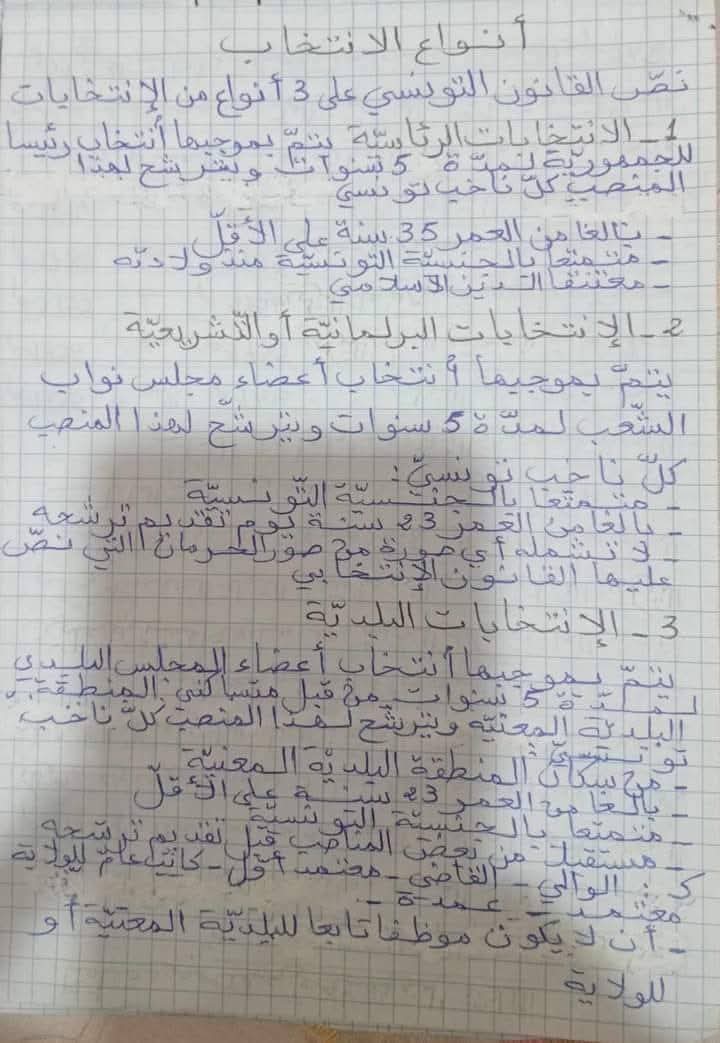 أنواع الانتخاب
نصّ القانون التونسي على 3 أنواع من الإنتخابات
1 - الانتخابات الرئاسيّة يتمّ بموجبها أنتخاب رئيسا
للجمهوريّة لمدّة 5 سنوات ويترشح لهذا
المنصب كلّ ناخب تونسي
- بالغا من العمر 35 سنة على الأقلّ
- متمتعا بالجنسيّة التونسيّة منذ ولادته
- معتنقا الدين الاسلامي
2 - الإنتخابات البرلمانيّة أو التّشريعيّة
يتمّ بموجبها أنتخاب أعضاء مجلس نواب
الشّعب لمدّة 5 سنوات ويترشّح لهذا المنصب
كلّ ناخب تونسيّ :
- متمتعا بالجنسيّة التّونسيّة
- بالغا من العمر 23 سنة يوم تقديم ترشحه
- لا تشمله أي صورة من صور الحرمان التي نصّ
عليها القانون الإنتخابي
3 - الإنتخابات البلديّة
يتمّ بموجبها أنتخاب أعضاء المجلس البلدي
لمدّة 5 سنوات من قبل متساكني المنطقة
البلديّة المعنيّة ويترشح لهذا المنصب كلّ ناخب
تونسيّ :
- من سكان المنطقة البلديّة المعنيّة
- بالغا من العمر 23 سنة على الأقلّ
- متمتعا بالجنسيّة التونسيّة
- مستقيلا من بعض المناصب قبل تقديم ترشحه
كـ : الوالي - القاضي - معتمد أوّل - كاتب عام للولاية
معتمد - عمدة -
- أن لا يكون موظفا تابعا للبلديّة المعنيّة أو
للولاية